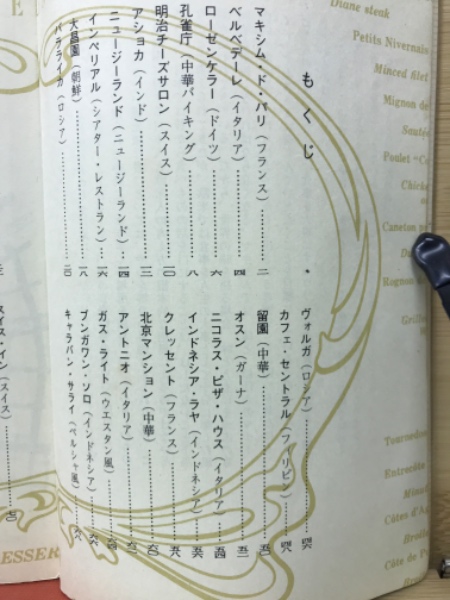 もくじ
マキシム・ド・パリ（フランス）……二
ベルベデーレ（イタリア）……四
ローゼンケラー（ドイツ）……六
孔雀庁（中華バイキング）……八
明治チーズサロン（スイス）……一〇
アショカ（インド）……一二
ニュージーランド（ニュージーランド）……一四
インペリアル（シアター・レストラン）……一六
大昌園（朝鮮）……一八
バラライカ（ロシア）……二〇
ヴォルガ（ロシア）……四六
カフェ・セントラル（フィリピン）……四八
留園（中華）……五〇
オスン（ガーナ）……五二
ニコラス・ピザ・ハウス（イタリア）……五四
インドネシア・ラヤ（インドネシア）……五六
クレッセント（フランス）……五八
北京マンション（中華）……六〇
アントニオ（イタリア）……六二
ガス・ライト（ウエスタン風）……六四
ブンガワン・ソロ（インドネシア）……六六
キャラバン・サライ（ペルシャ風）……六八
スイス・イン（スイス）……
Diane steak
Petits Nivernais
Minced filet
Mignon de
Sauté
Poulet
Chicke
Caneton
Rognon
Grille
Tournedos
Entrecôte
Minu
Côtes d'A
Broile
Côte de Po
ESSER